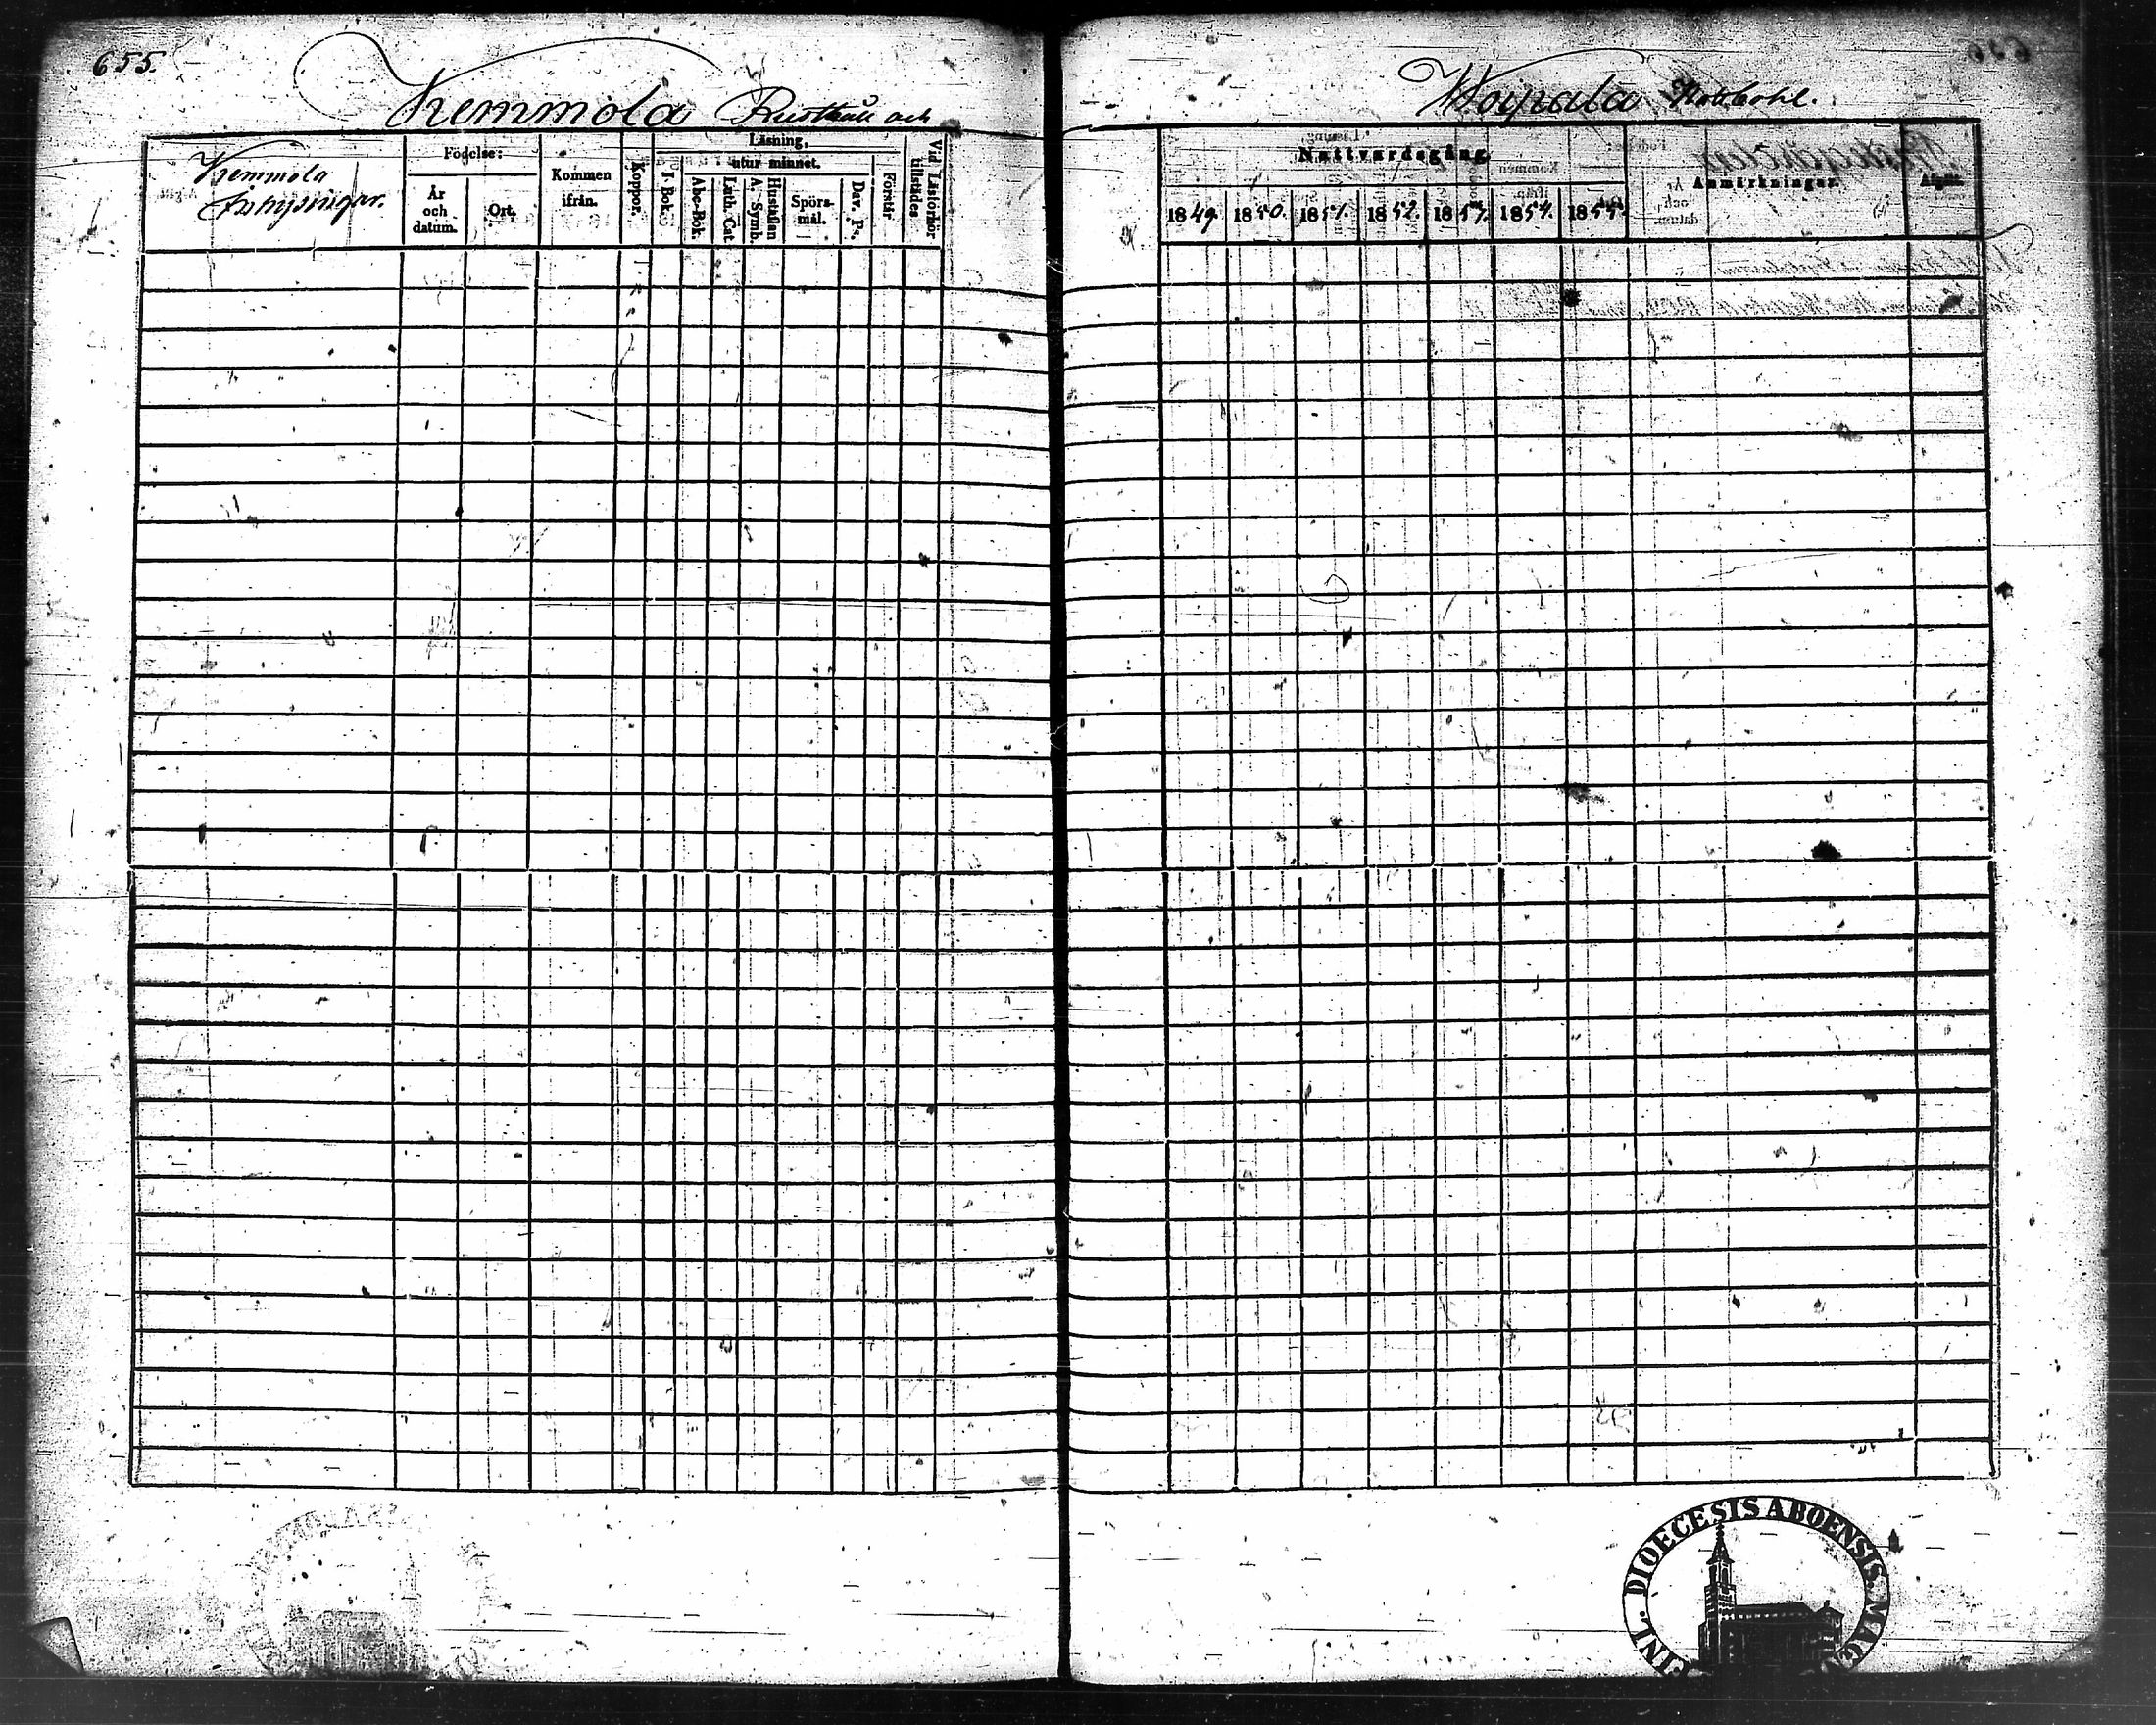 655.
Kemmola Rusthåll och
Woipala Stubbohl.
Kemmola
Inhysingar.
Födelse:
År
och
datum.
Ort.
Kommen
ifrån.
Koppor.
Läsning,
utur minnet.
I. Bok.
Abc-Bok.
Luth. Cat.
Hustaflan
A. Symb.
Spörs-
mål.
Dav. Ps.
Förstår
Vid Läsförhör
tillstädes
Nattvardsgång
1849.
1850.
1851.
1852.
1853.
1854.
1855.
Anmärkningar.
Afgått.
DIOECESIS ABOENSIS. MAG
FINL.